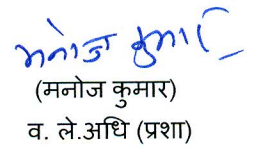 मनोज कुमार
(मनोज कुमार)
व. ले.अधि (प्रशा)